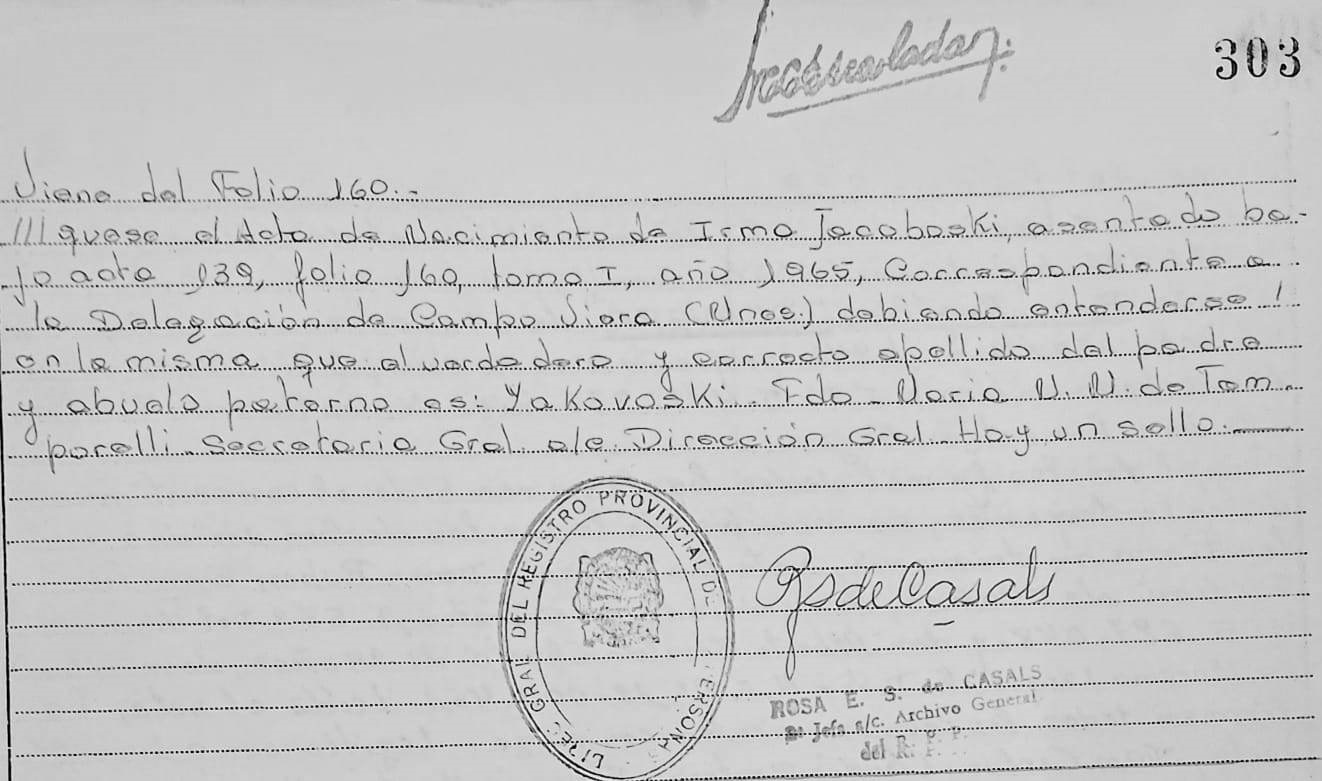 303
Viene del Folio 160.-
/// quese el Acta de Nacimiento de Irma Jacoboski, asentado ba-
jo acta 139, folio 160, tomo I, año 1965, Correspondiente a
la Delegación de Campo Viera (Mnes.) debiendo entenderse
en la misma que el verdadero y correcto apellido del padre
y abuelo paterno es: Yakovoski. Fdo. Maria N. N. de Tem-
porelli. Secretaria Gral. a/c. Dirección Gral. Hay un sello.
GRAL DEL REGISTRO PROVINCIAL DE
RS de Casals
ROSA E. S. de CASALS
Jefa a/c. Archivo General
del R. P. P.